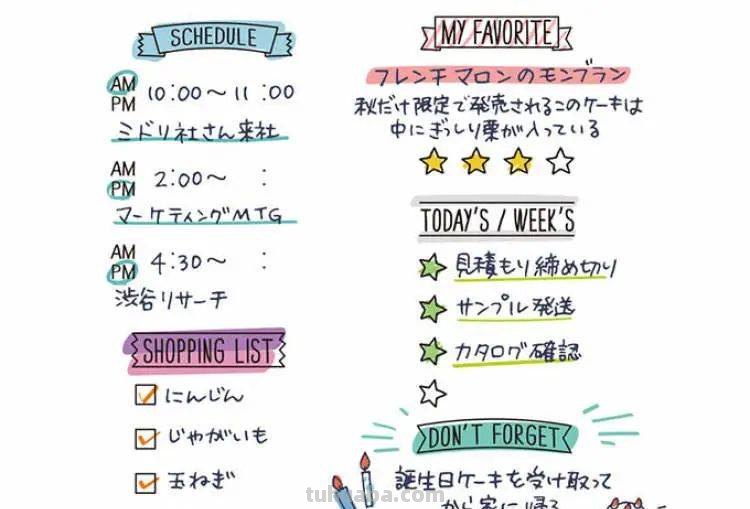 SCHEDULE
AM
PM
10:00～11:00
ミドリ社さん来社
AM
PM
2:00～ :
マーケティングMTG
AM
PM
4:30～ :
渋谷リサーチ
SHOPPING LIST
にんじん
じゃがいも
玉ねぎ
MY FAVORITE
フレンチマロンのモンブラン
秋だけ限定で発売されるこのケーキは
中にぎっしり栗が入っている
TODAY'S / WEEK'S
見積もり締め切り
サンプル発送
カタログ確認
DON'T FORGET
誕生日ケーキを受け取って
から家に帰る
tukuaba.com